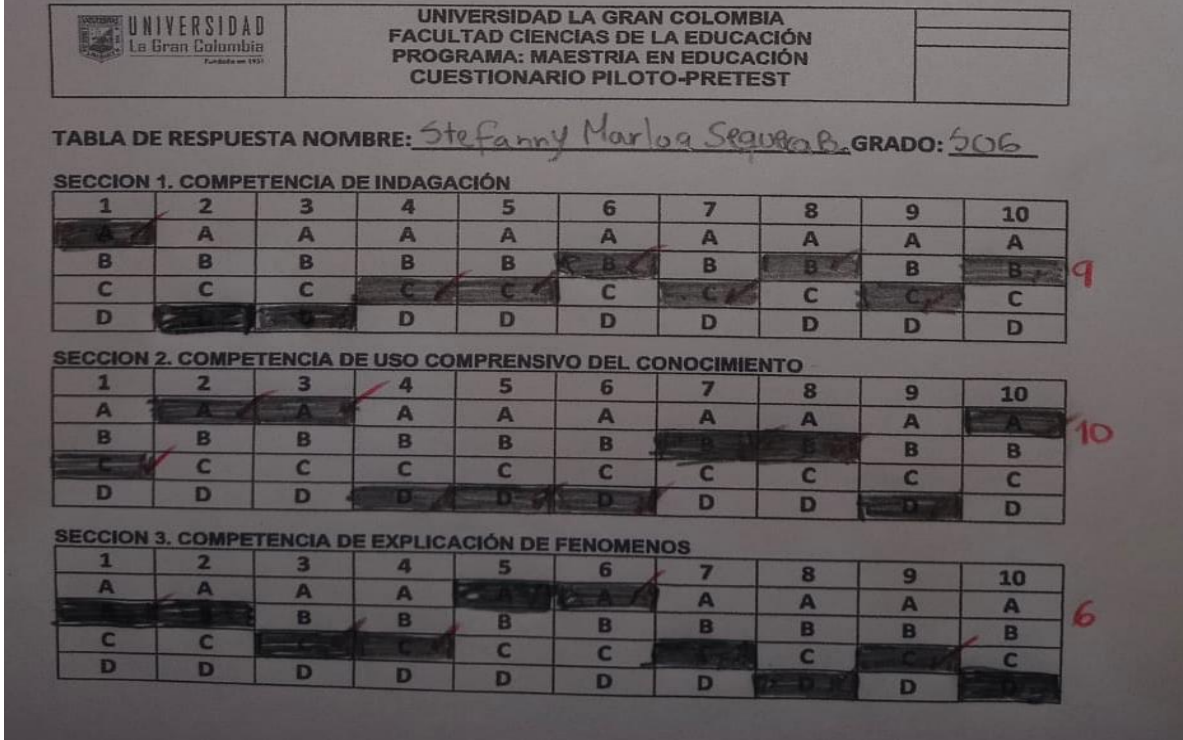 UNIVERSIDAD
La Gran Colombia
Fundada en 1951
UNIVERSIDAD LA GRAN COLOMBIA
FACULTAD CIENCIAS DE LA EDUCACIÓN
PROGRAMA: MAESTRIA EN EDUCACIÓN
CUESTIONARIO PILOTO-PRETEST
TABLA DE RESPUESTA NOMBRE: Stefanny B. GRADO: 506
SECCION 1. COMPETENCIA DE INDAGACIÓN
1 2 3 4 5 6 7 8 9 10
A A A A A A A A A A
B B B B B B B B B B 9
C C C C C C C C C C
D D D D D D D D D
SECCION 2. COMPETENCIA DE USO COMPRENSIVO DEL CONOCIMIENTO
1 2 3 4 5 6 7 8 9 10
A A A A A A A A A A
B B B B B B B B B B 10
C C C C C C C C C C
D D D D D D D D D D
SECCION 3. COMPETENCIA DE EXPLICACIÓN DE FENOMENOS
1 2 3 4 5 6 7 8 9 10
A A A A A A A A A A
B B B B B B B B B 6
C C C C C C C C C C
D D D D D D D D D D